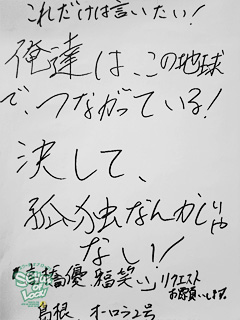 これだけは言いたい!
俺達は、この地球
で、つながっている!
決して、
孤独なんかじゃ
ない!!
「高橋優 福笑い」リクエスト
お願いします。
島根、オーロラ2号